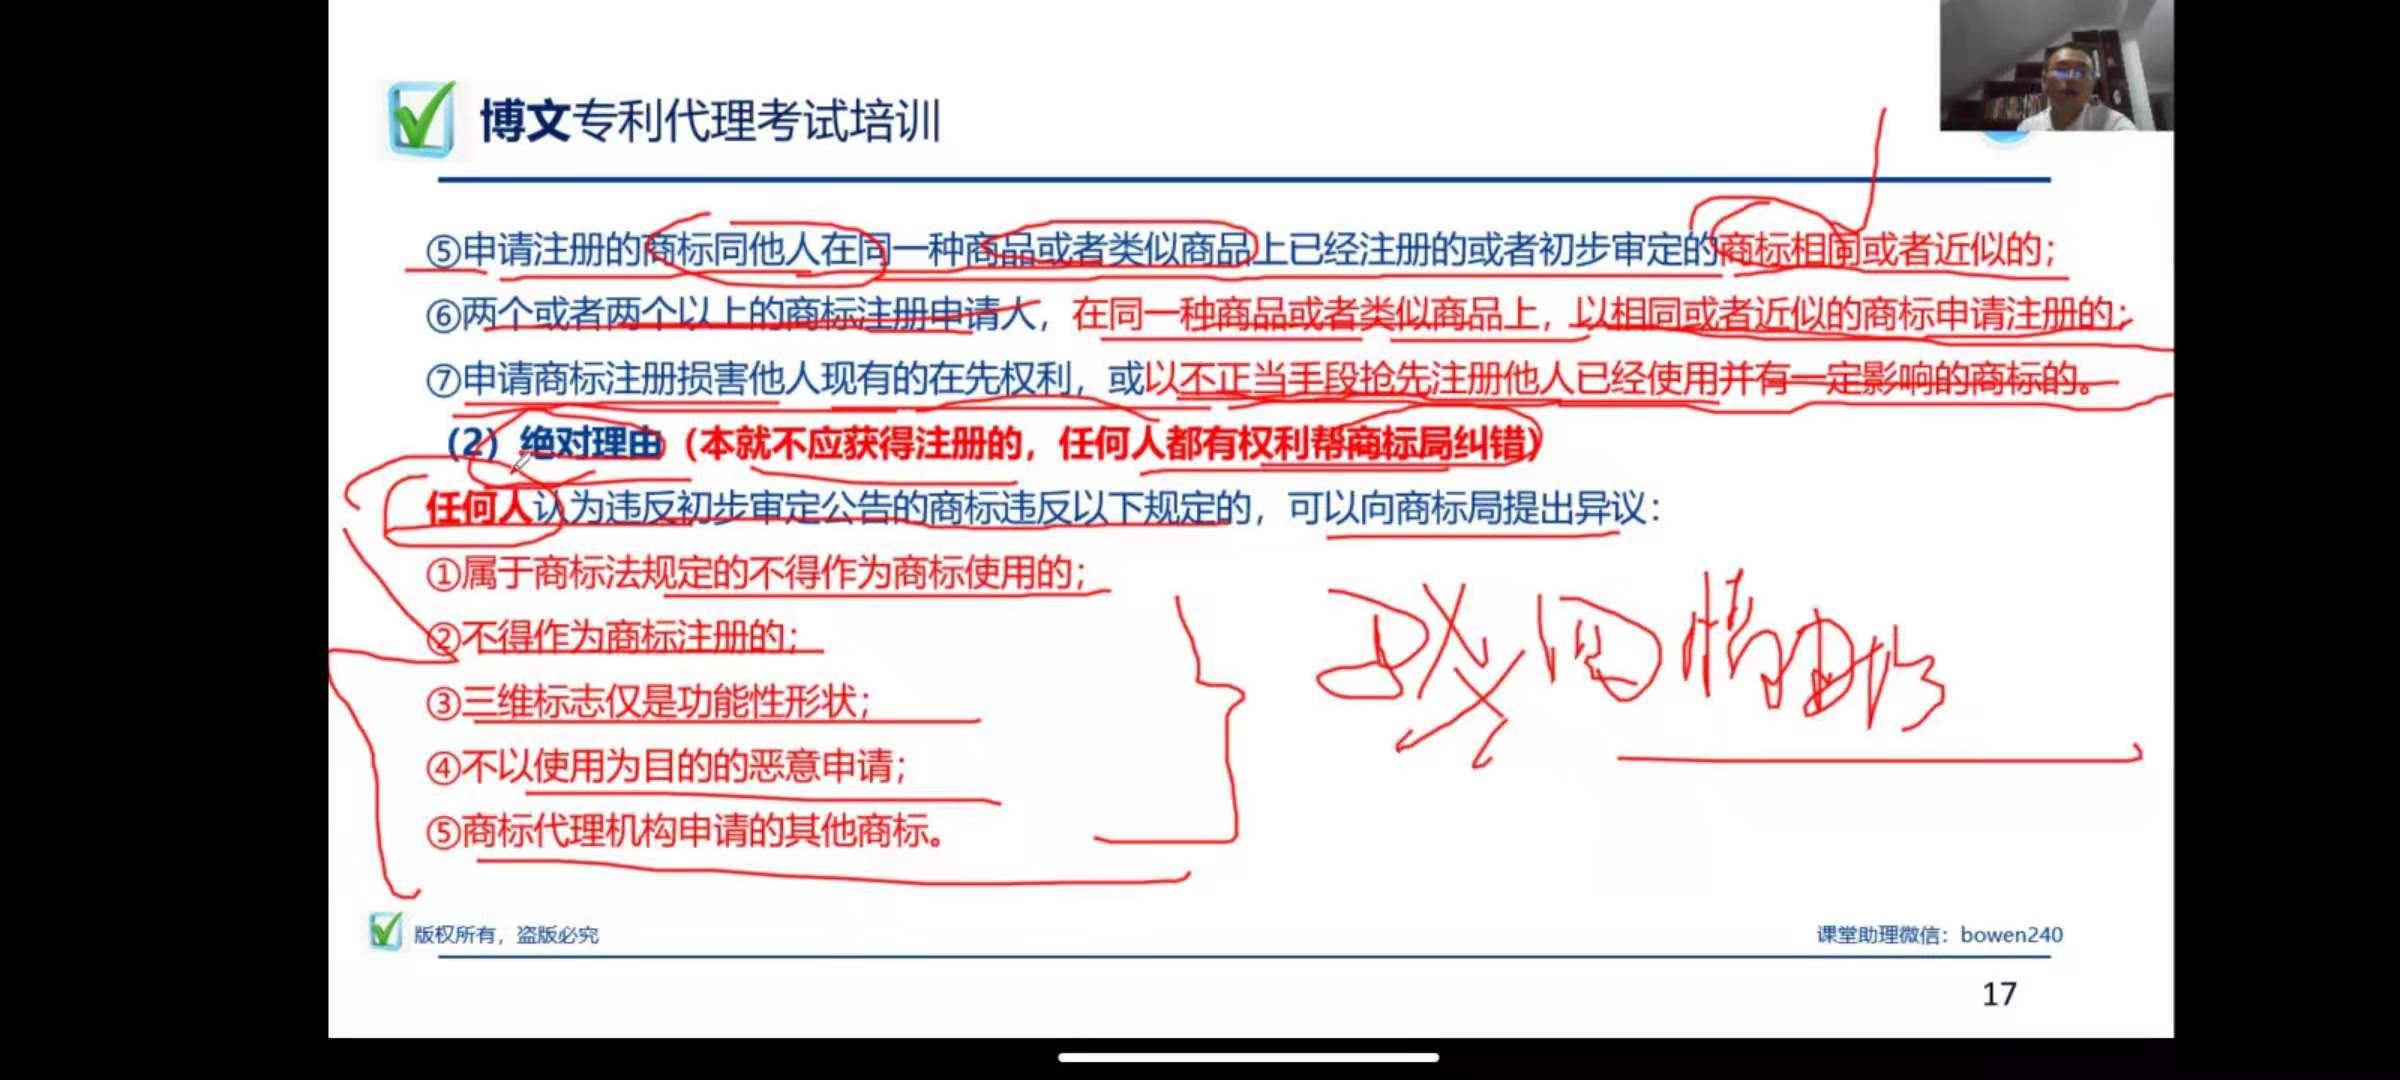 博文专利代理考试培训
⑤申请注册的商标同他人在同一种商品或者类似商品上已经注册的或者初步审定的商标相同或者近似的；
⑥两个或者两个以上的商标注册申请人，在同一种商品或者类似商品上，以相同或者近似的商标申请注册的；
⑦申请商标注册损害他人现有的在先权利，或以不正当手段抢先注册他人已经使用并有一定影响的商标的。
（2）绝对理由（本就不应获得注册的，任何人都有权利帮商标局纠错）
任何人认为违反初步审定公告的商标违反以下规定的，可以向商标局提出异议：
①属于商标法规定的不得作为商标使用的；
②不得作为商标注册的；
③三维标志仅是功能性形状；
④不以使用为目的的恶意申请；
⑤商标代理机构申请的其他商标。
版权所有，盗版必究
课堂助理微信：bowen240
17